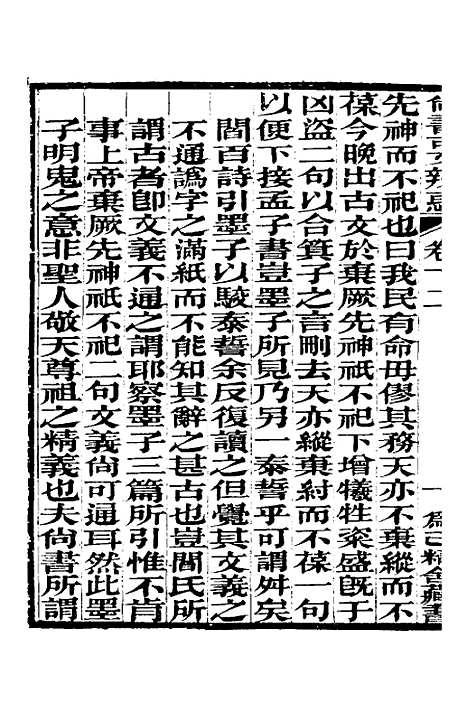 尙書古文辨惑 卷十二 一 爲己精舍藏書
先神而不祀也曰我民有命毋僇其務天亦不棄縱而不
葆今晚出古文於棄厥先神祇不祀下增犧牲粢盛旣于
凶盜二句以合箕子之言刪去天亦縱棄紂而不葆一句
以便下接孟子書豈墨子所見乃另一泰誓乎可謂舛矣
閻百詩引墨子以駮泰誓余反復讀之但覺其文義之
不通譌字之滿紙而不能知其辭之甚古也豈閻氏所
謂古者卽文義不通之謂耶察墨子三篇所引惟不肯
事上帝棄厥先神祇不祀二句文義尙可通耳然此墨
子明鬼之意非聖人敬天尊祖之精義也夫尙書所謂